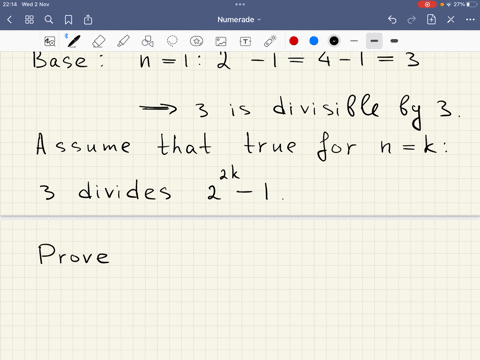 22:14 Wed 2 Nov
27%
Numerade
Base: n = 1: 2 - 1 = 4 - 1 = 3
→ 3 is divisible by 3.
Assume that true for n = k:
3 divides 2^2k - 1.
Prove